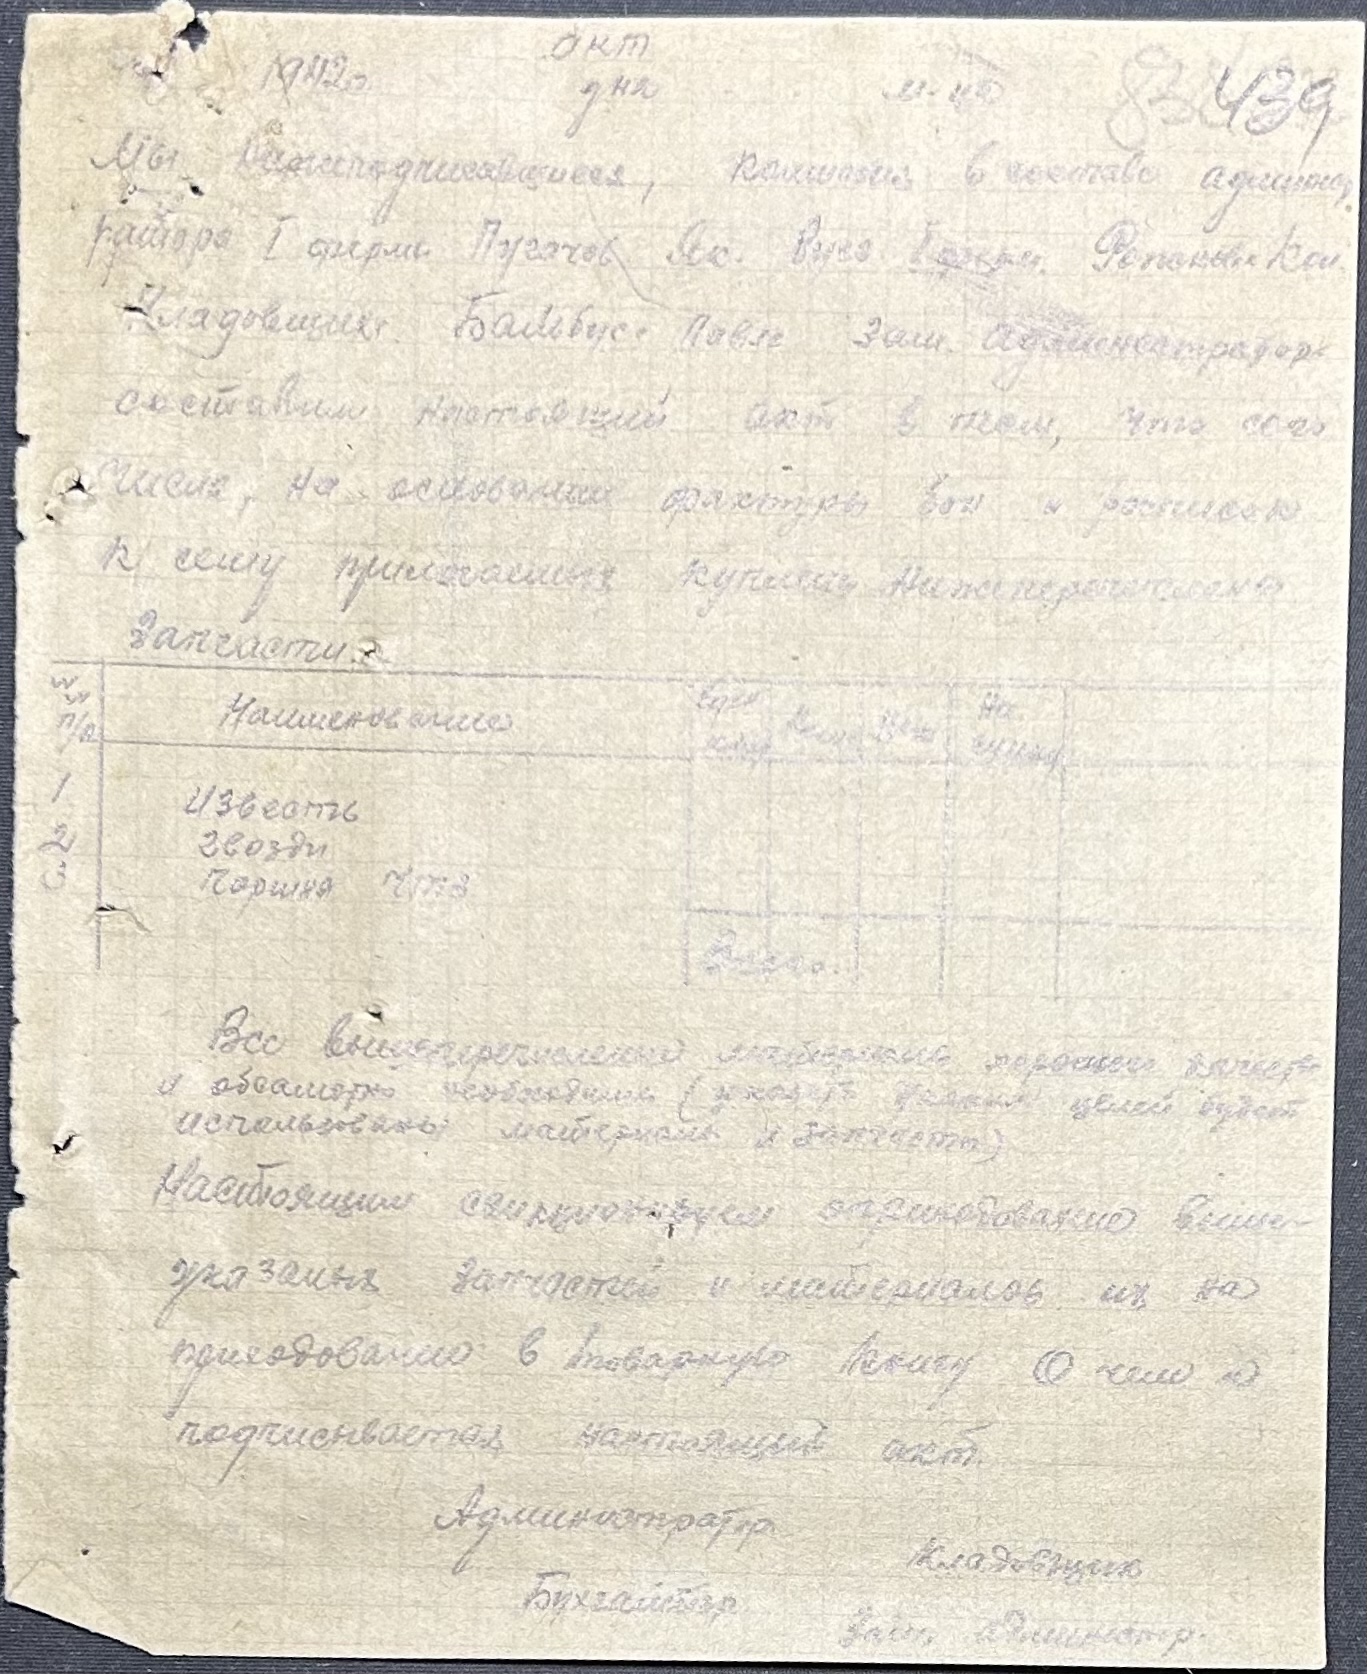 Акт
1942г. дня м-ца 439
Мы нижеподписавшиеся, комиссия в составе админист
ратора I фермы Пугачов Як. Кол.
Кладовщик Бамбус Павле Зам. администратора
составили настоящий акт в том, что сего
числа, на основании фактуры и расписок
к сему прилогаемых купленъ нижеперечисленъ
Запчасти.
№№ п/п Наименование Един. Колич. Цена На сумму
1 известь
2 гвозди
3 Поршня ЧТЗ
Всего.
Все вышеперечисленый материаль хорошего качеств
и необходимы ( целей будет
использованы материаль и запчасти)
Настоящим санкционизуем оприходование выше-
указаных запчастей и материалов их на
приходование в товарную книгу О чем и
подписывается настоящий акт.
Администратор
Кладовщик
Бухгалтер
Зам. администр.